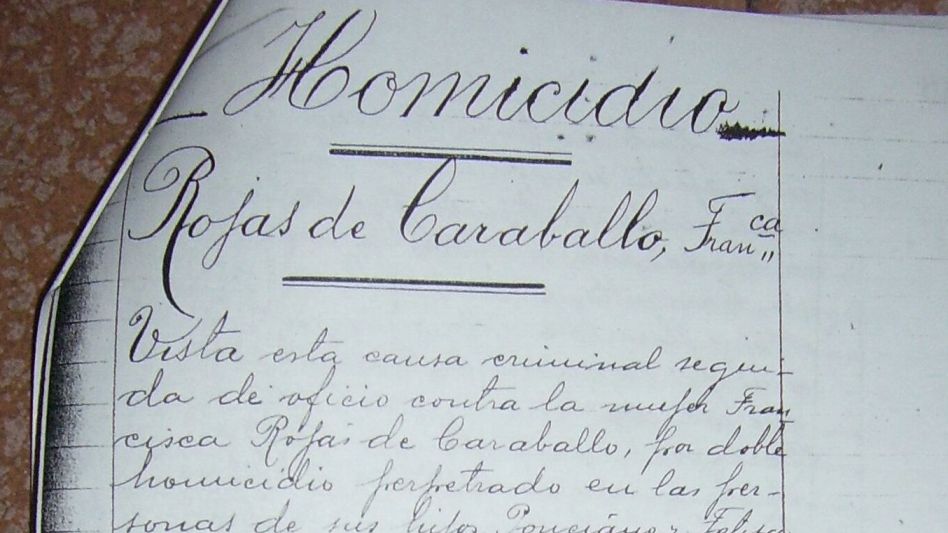 Homicidio
Rojas de Caraballo, Fran ca
Vista esta causa criminal segui-
da de oficio contra la mujer Fran
cisca Rojas de Caraballo, por doble
homicidio perpetrado en las per-
sonas de sus hijos Ponciano y Felisa